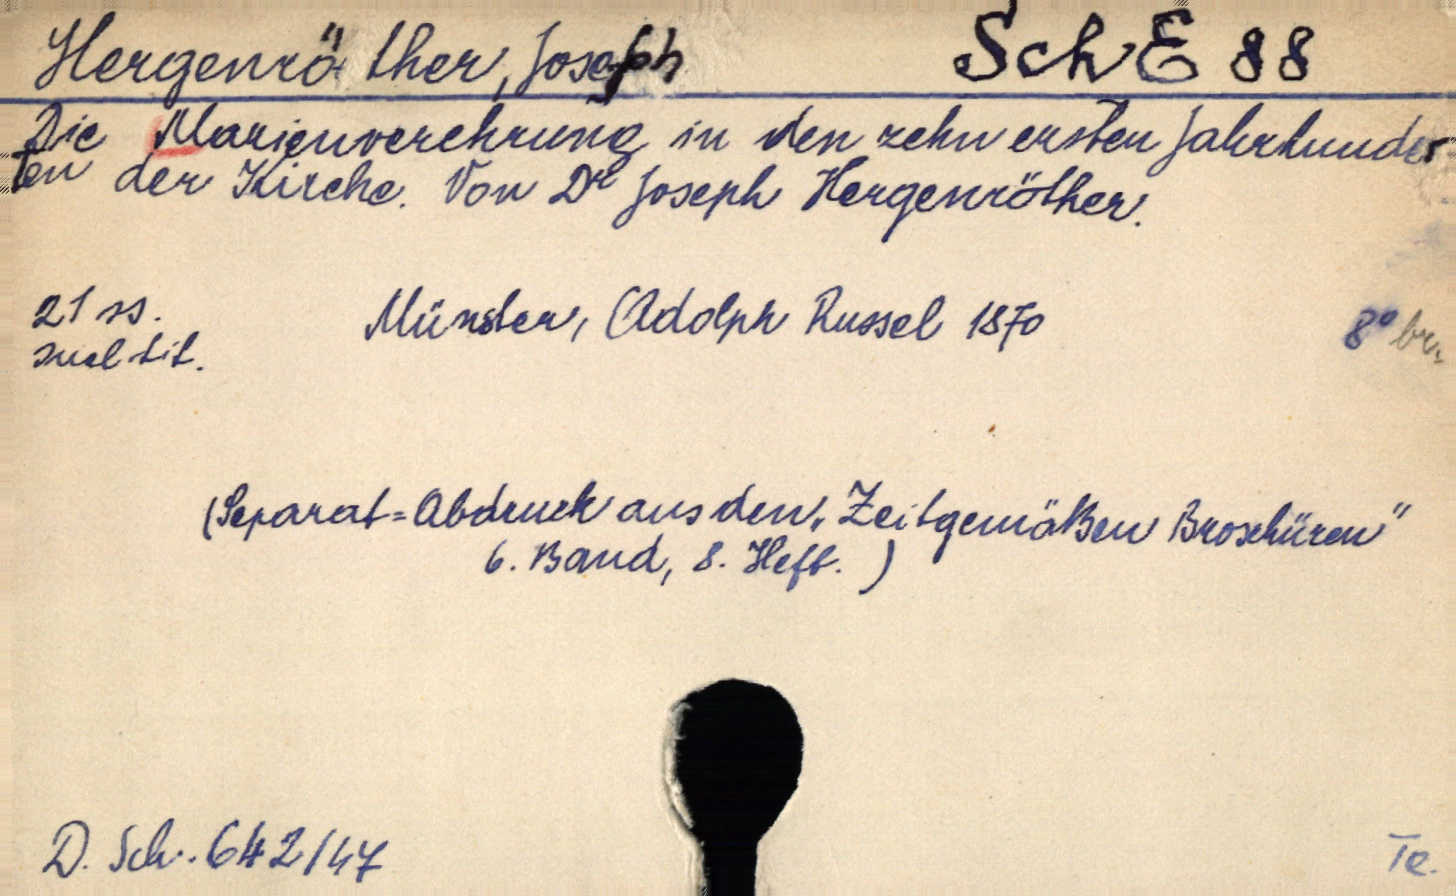 Hergenröther, Joseph SchE 88
Die Marienverehrung in den zehn ersten Jahrhunder-
ten der Kirche. Von Dr Joseph Hergenröther.
21 ss. Münster, Adolph Russel 1870 8° br.
tit.
(Separat=Abdruck aus den „Zeitgemäßen Broschüren"
6. Band, 8. Heft. )
D. Sch. 642/47 Te.